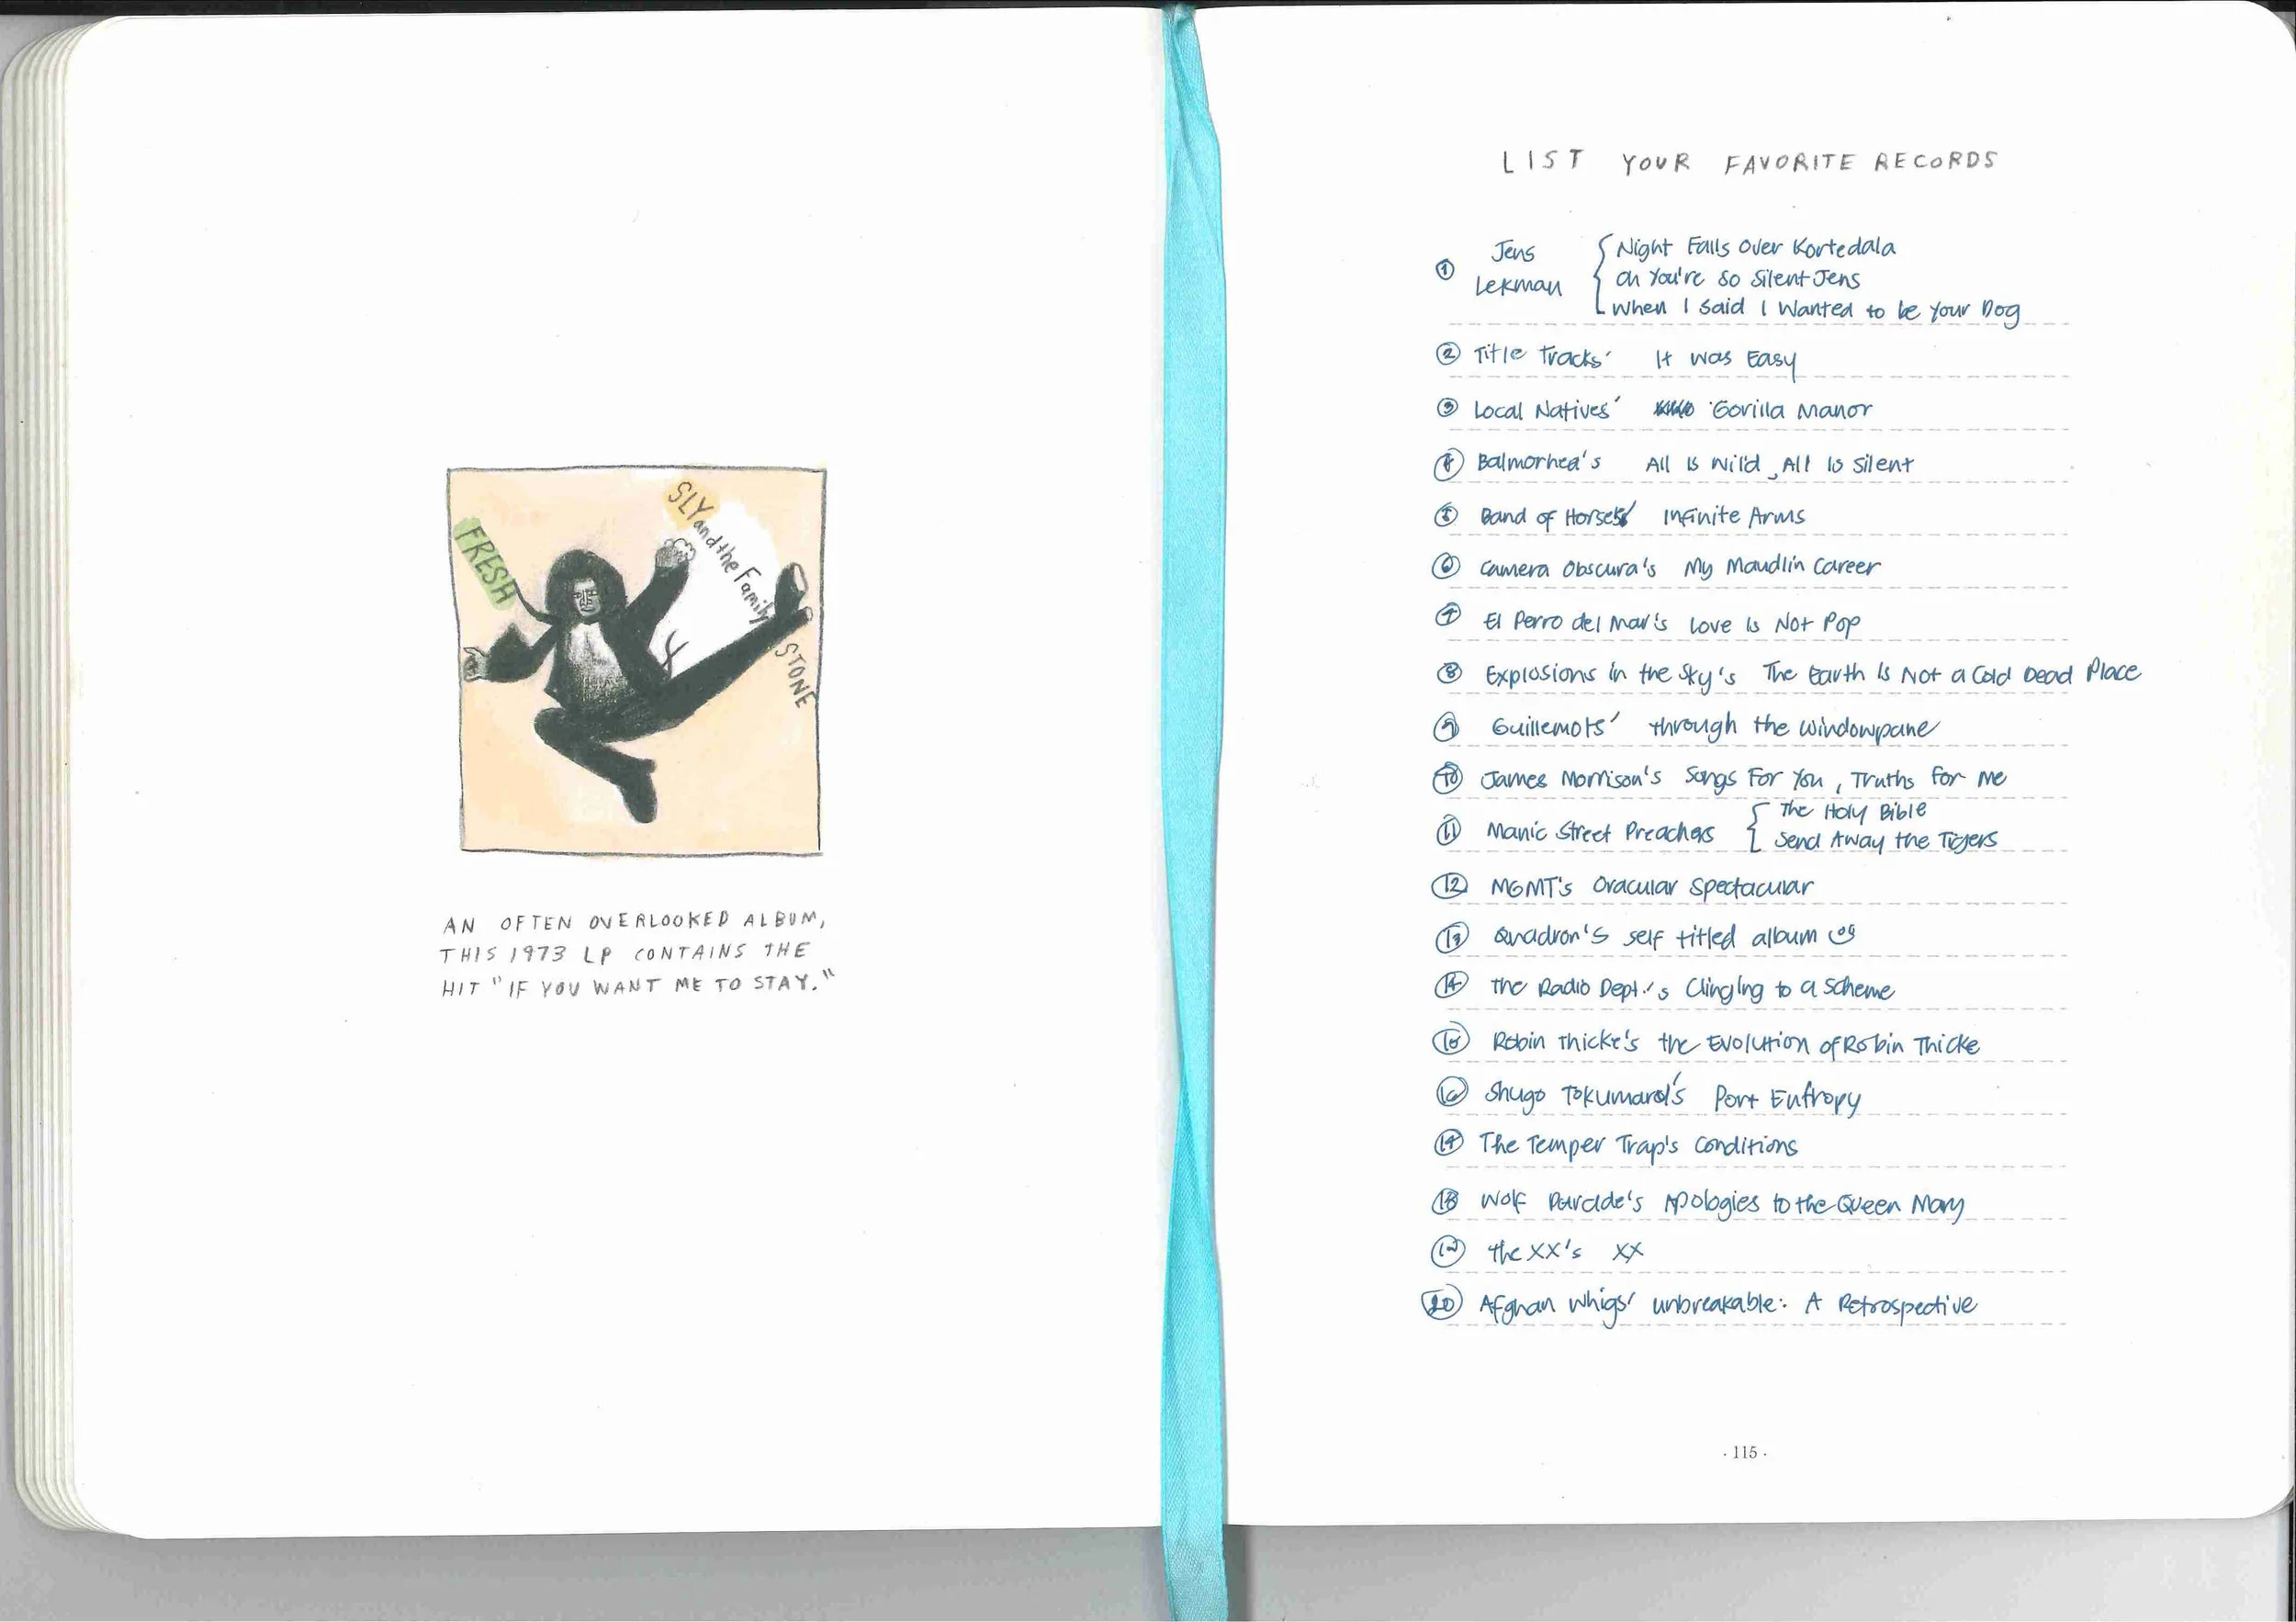 FRESH
SLY and the Family STONE
AN OFTEN OVERLOOKED ALBUM,
THIS 1973 LP CONTAINS THE
HIT "IF YOU WANT ME TO STAY."
LIST YOUR FAVORITE RECORDS
① Jens Lekman { Night Falls Over Kortedala
Oh You're So Silent Jens
When I Said I Wanted to be Your Dog
② Title Tracks' It Was Easy
③ Local Natives' Gorilla Manor
④ Balmorhea's All Is Wild, All Is Silent
⑤ Band of Horses' Infinite Arms
⑥ Camera Obscura's My Maudlin Career
⑦ El Perro del Mar's Love Is Not Pop
⑧ Explosions in the Sky's The Earth Is Not a Cold Dead Place
⑨ Guillemots' Through the Windowpane
⑩ James Morrison's Songs For You, Truths For Me
⑪ Manic Street Preachers { The Holy Bible
Send Away the Tigers
⑫ MGMT's Oracular Spectacular
⑬ Quadron's self titled album
⑭ The Radio Dept.'s Clinging to a Scheme
⑮ Robin Thicke's The Evolution of Robin Thicke
⑯ Shugo Tokumaru's Port Entropy
⑰ The Temper Trap's Conditions
⑱ Wolf Parade's Apologies to the Queen Mary
⑲ The XX's XX
⑳ Afghan Whigs' Unbreakable: A Retrospective
· 115 ·